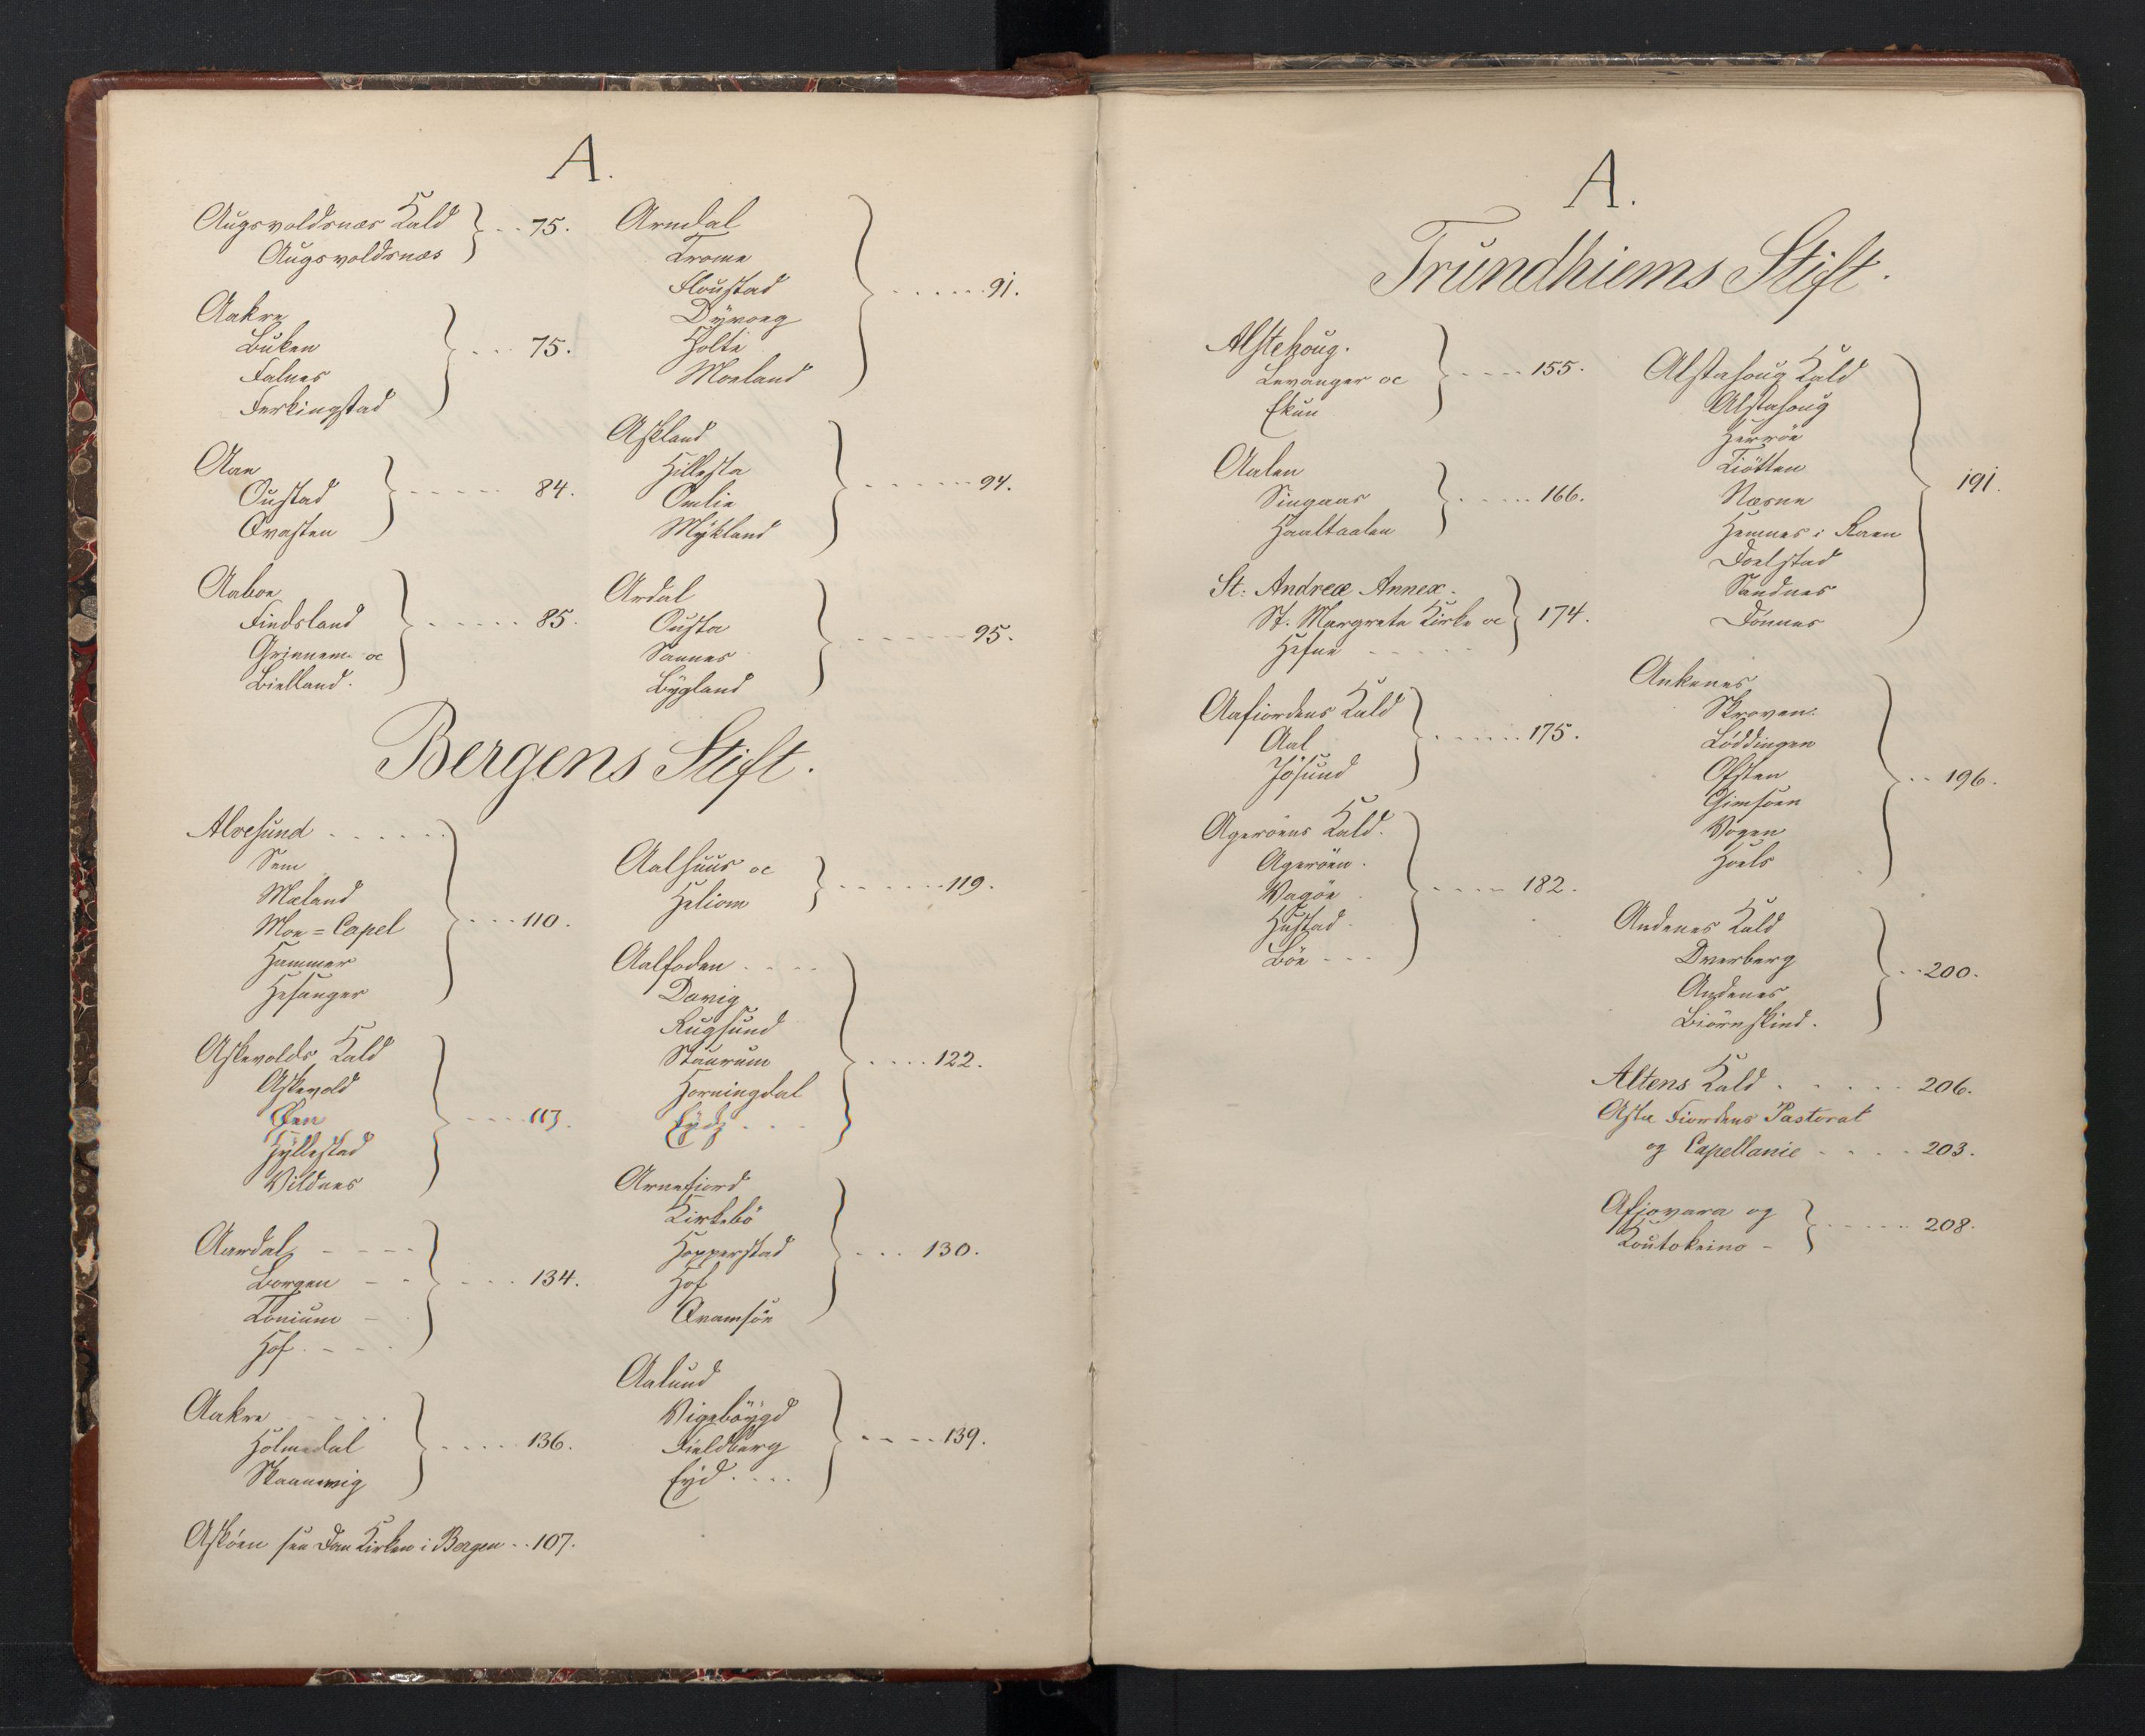 A.
Augsvoldsnæs Kald
Augsvoldsnæs
75.
Aakre
Buken
Falnes
Ferkingstad
75.
Aae
Oustad
Qvasten
84.
Aaboe
Findsland
Grinnem oc
Bielland.
85.
Arndal
Trome
Floustad
Dÿvoeg
Holte
Moeland
91.
Askland
Hillesta
Omlie
Mÿkland
94.
Ardal
Ousta
Sannes
Bÿgland
95.
Bergens Stift.
Alvesund
Sem
Mæland
Moe = Capel
Hammer
Hesanger
110.
Askevolds Kald
Askevold
Øen
Hÿllestad
Vildnes
113.
Aardal
Borgen
Tonium
Hof
134.
Aakre
Holmedal
Skaanevig
136.
Askøen see Dom Kirken i Bergen 107.
Aalhuus oc
Heliom
119.
Aalfoden
Davig
Rugsund
Staurum
Horningdal
Eÿdz
122.
Arnefiord
Kirkebö
Hopperstad
Hof
Qvamsöe
130.
Aalund
Vigebÿgd
Fieldberg
Eÿd
139.
A.
Trundhiems Stift.
Alstehoug.
Levanger oc
Ekun
155.
Aalen
Singaas
Haaltaalen
166.
St: Andreæ Annex.
St. Margreta Kirke oc
Hefne
174.
Aafiordens Kald
Aal
Jösund
175.
Ageröens Kald.
Ageröen.
Vagöe
Hustad.
Böe
182.
Alstahoug Kald
Alstahoug
Herröe
Tiötten
Næsne
Hemnes i Raen
Doelstad
Sandnes
Dönnes
191.
Ankenes
Skroven.
Löddingen
Ofsten
Gimsöen
Vogen
Hoels
196.
Andenes Kald
Dverberg
Andenes
Biörnskind.
200.
Altens Kald 206.
Asta Fiordens Pastorat
og Capellanie 203.
Afjovara og
Koutokeino
208.